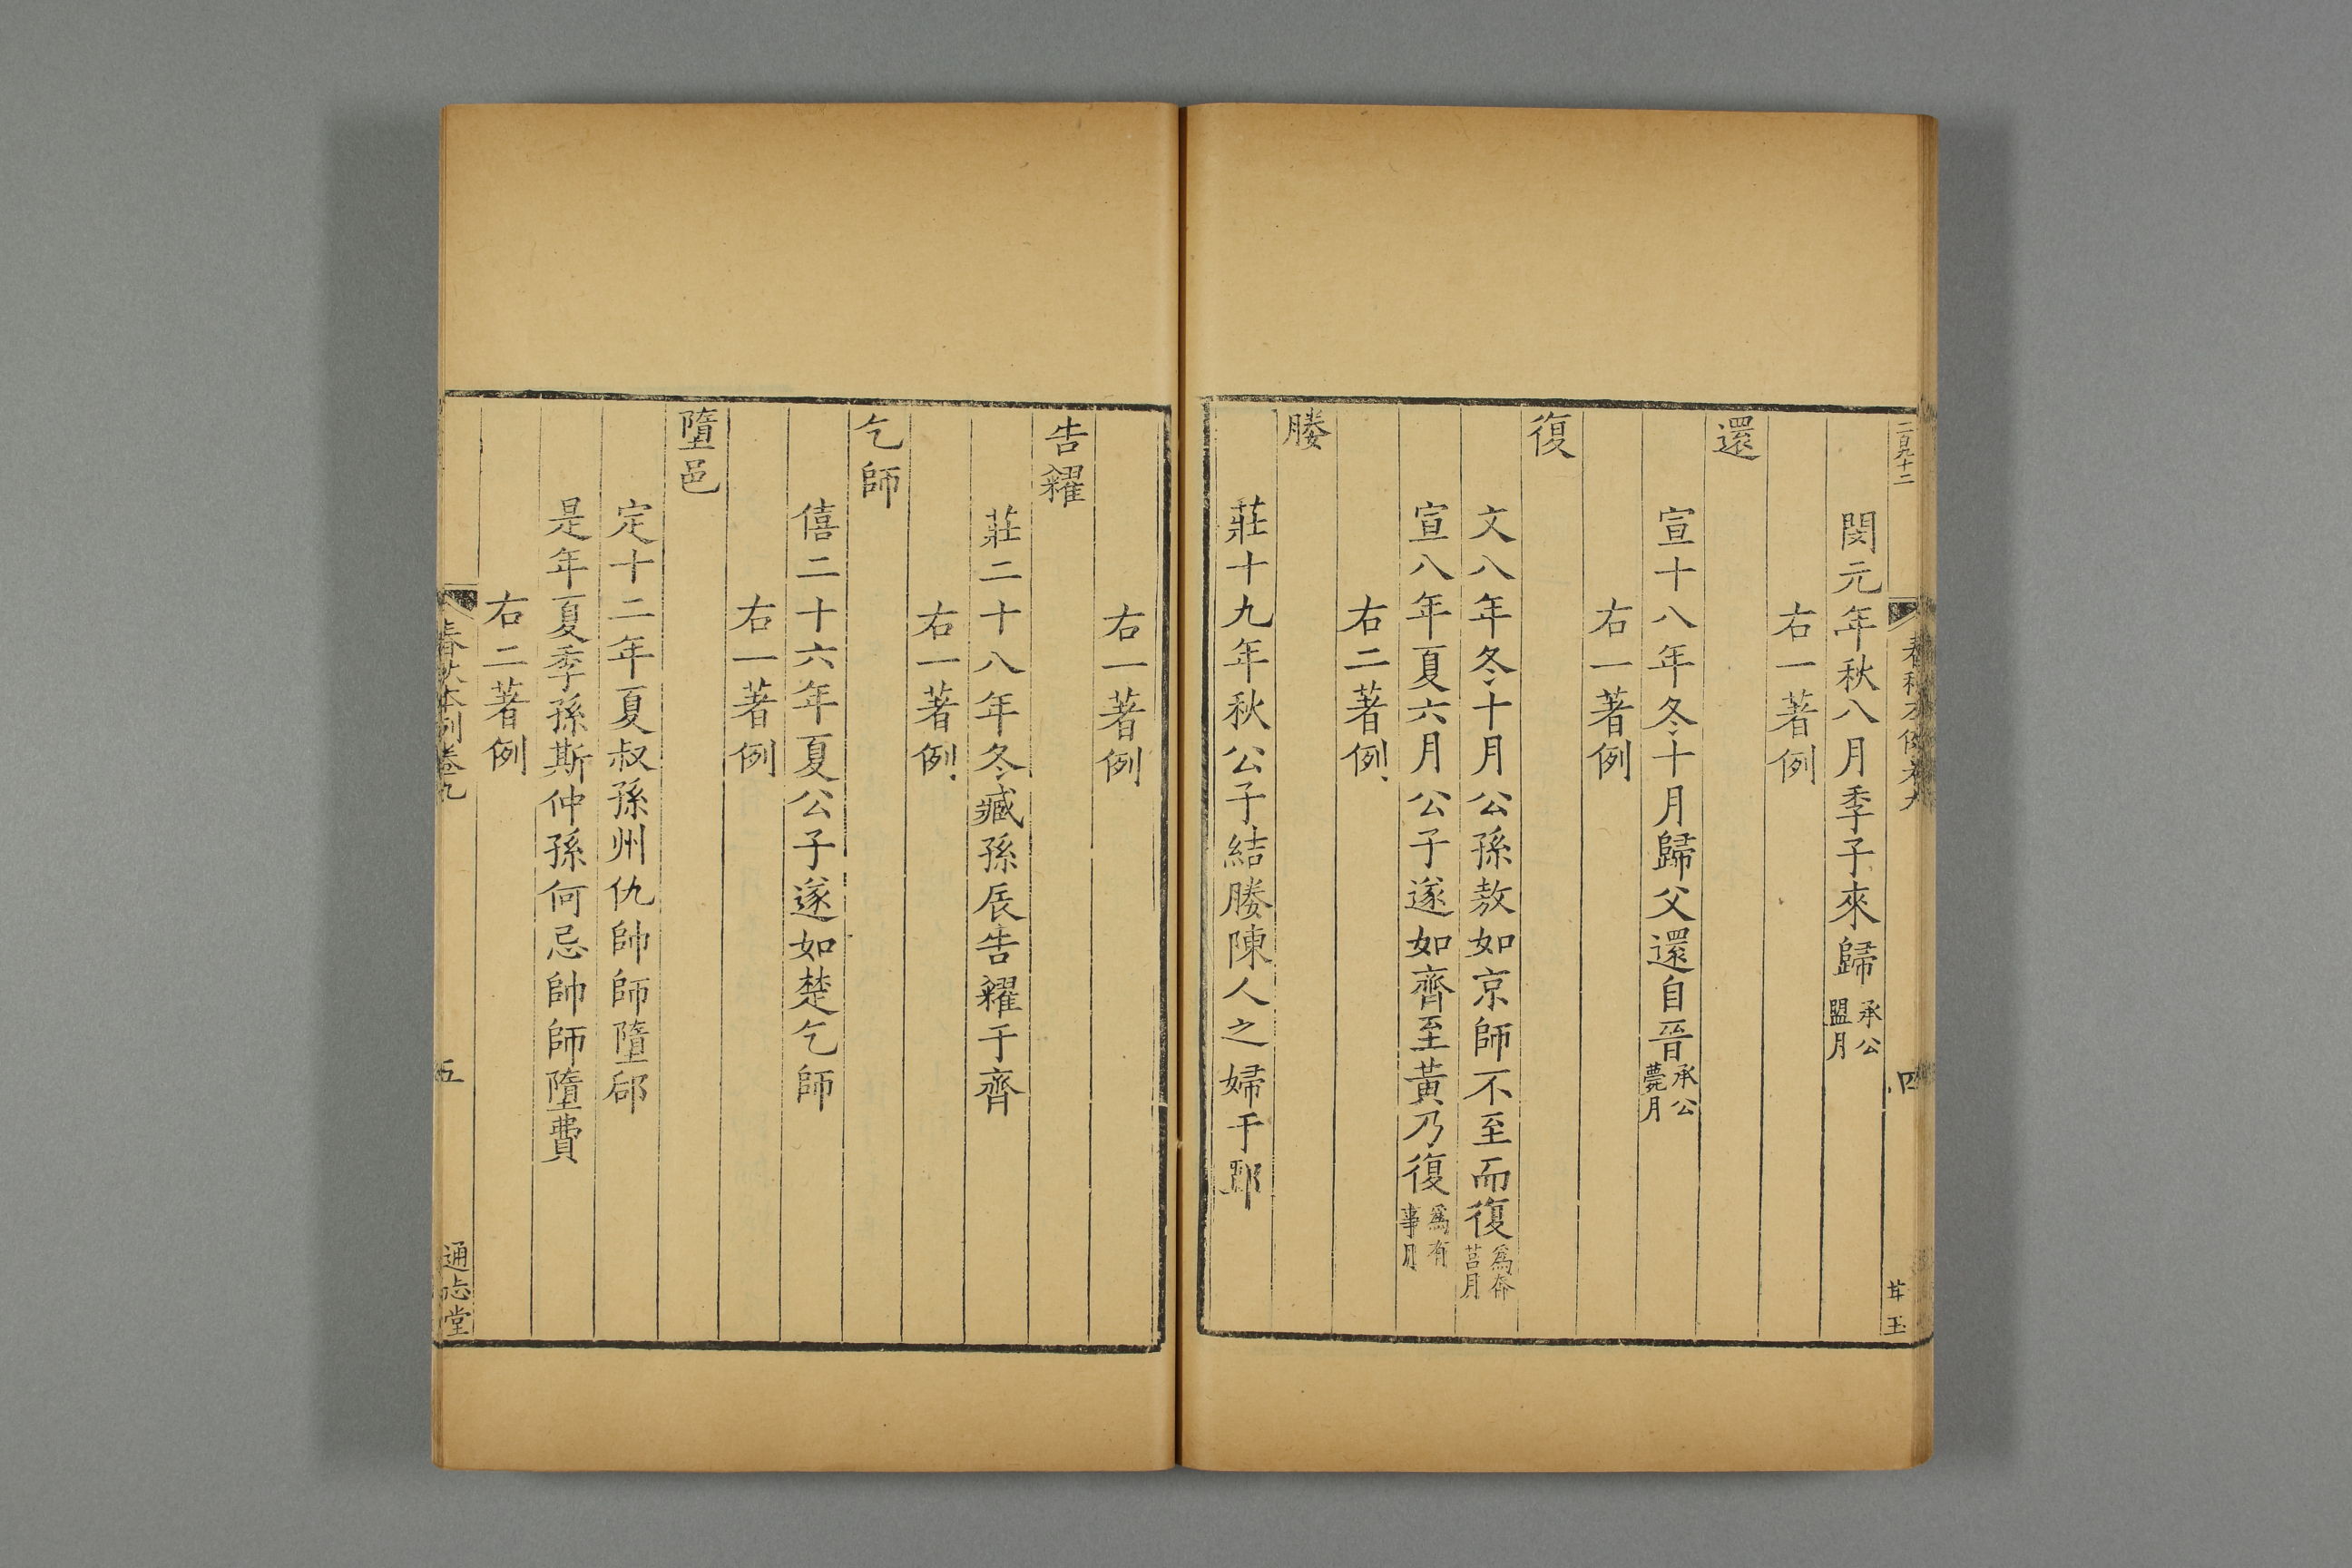 二百九十二
春秋本例卷九
四
甘玉
閔元年秋八月季子來歸承公盟月
右一著例
還
宣十八年冬十月歸父還自晉承公薨月
右一著例
復
文八年冬十月公孫敖如京師不至而復爲奔莒月
宣八年夏六月公子遂如齊至黃乃復爲有事月
右二著例
媵
莊十九年秋公子結媵陳人之婦于鄄
右一著例
告糴
莊二十八年冬臧孫辰告糴于齊
右一著例
乞師
僖二十六年夏公子遂如楚乞師
右一著例
墮邑
定十二年夏叔孫州仇帥師墮郈
是年夏季孫斯仲孫何忌帥師墮費
右二著例
春秋本例卷九
五
通志堂